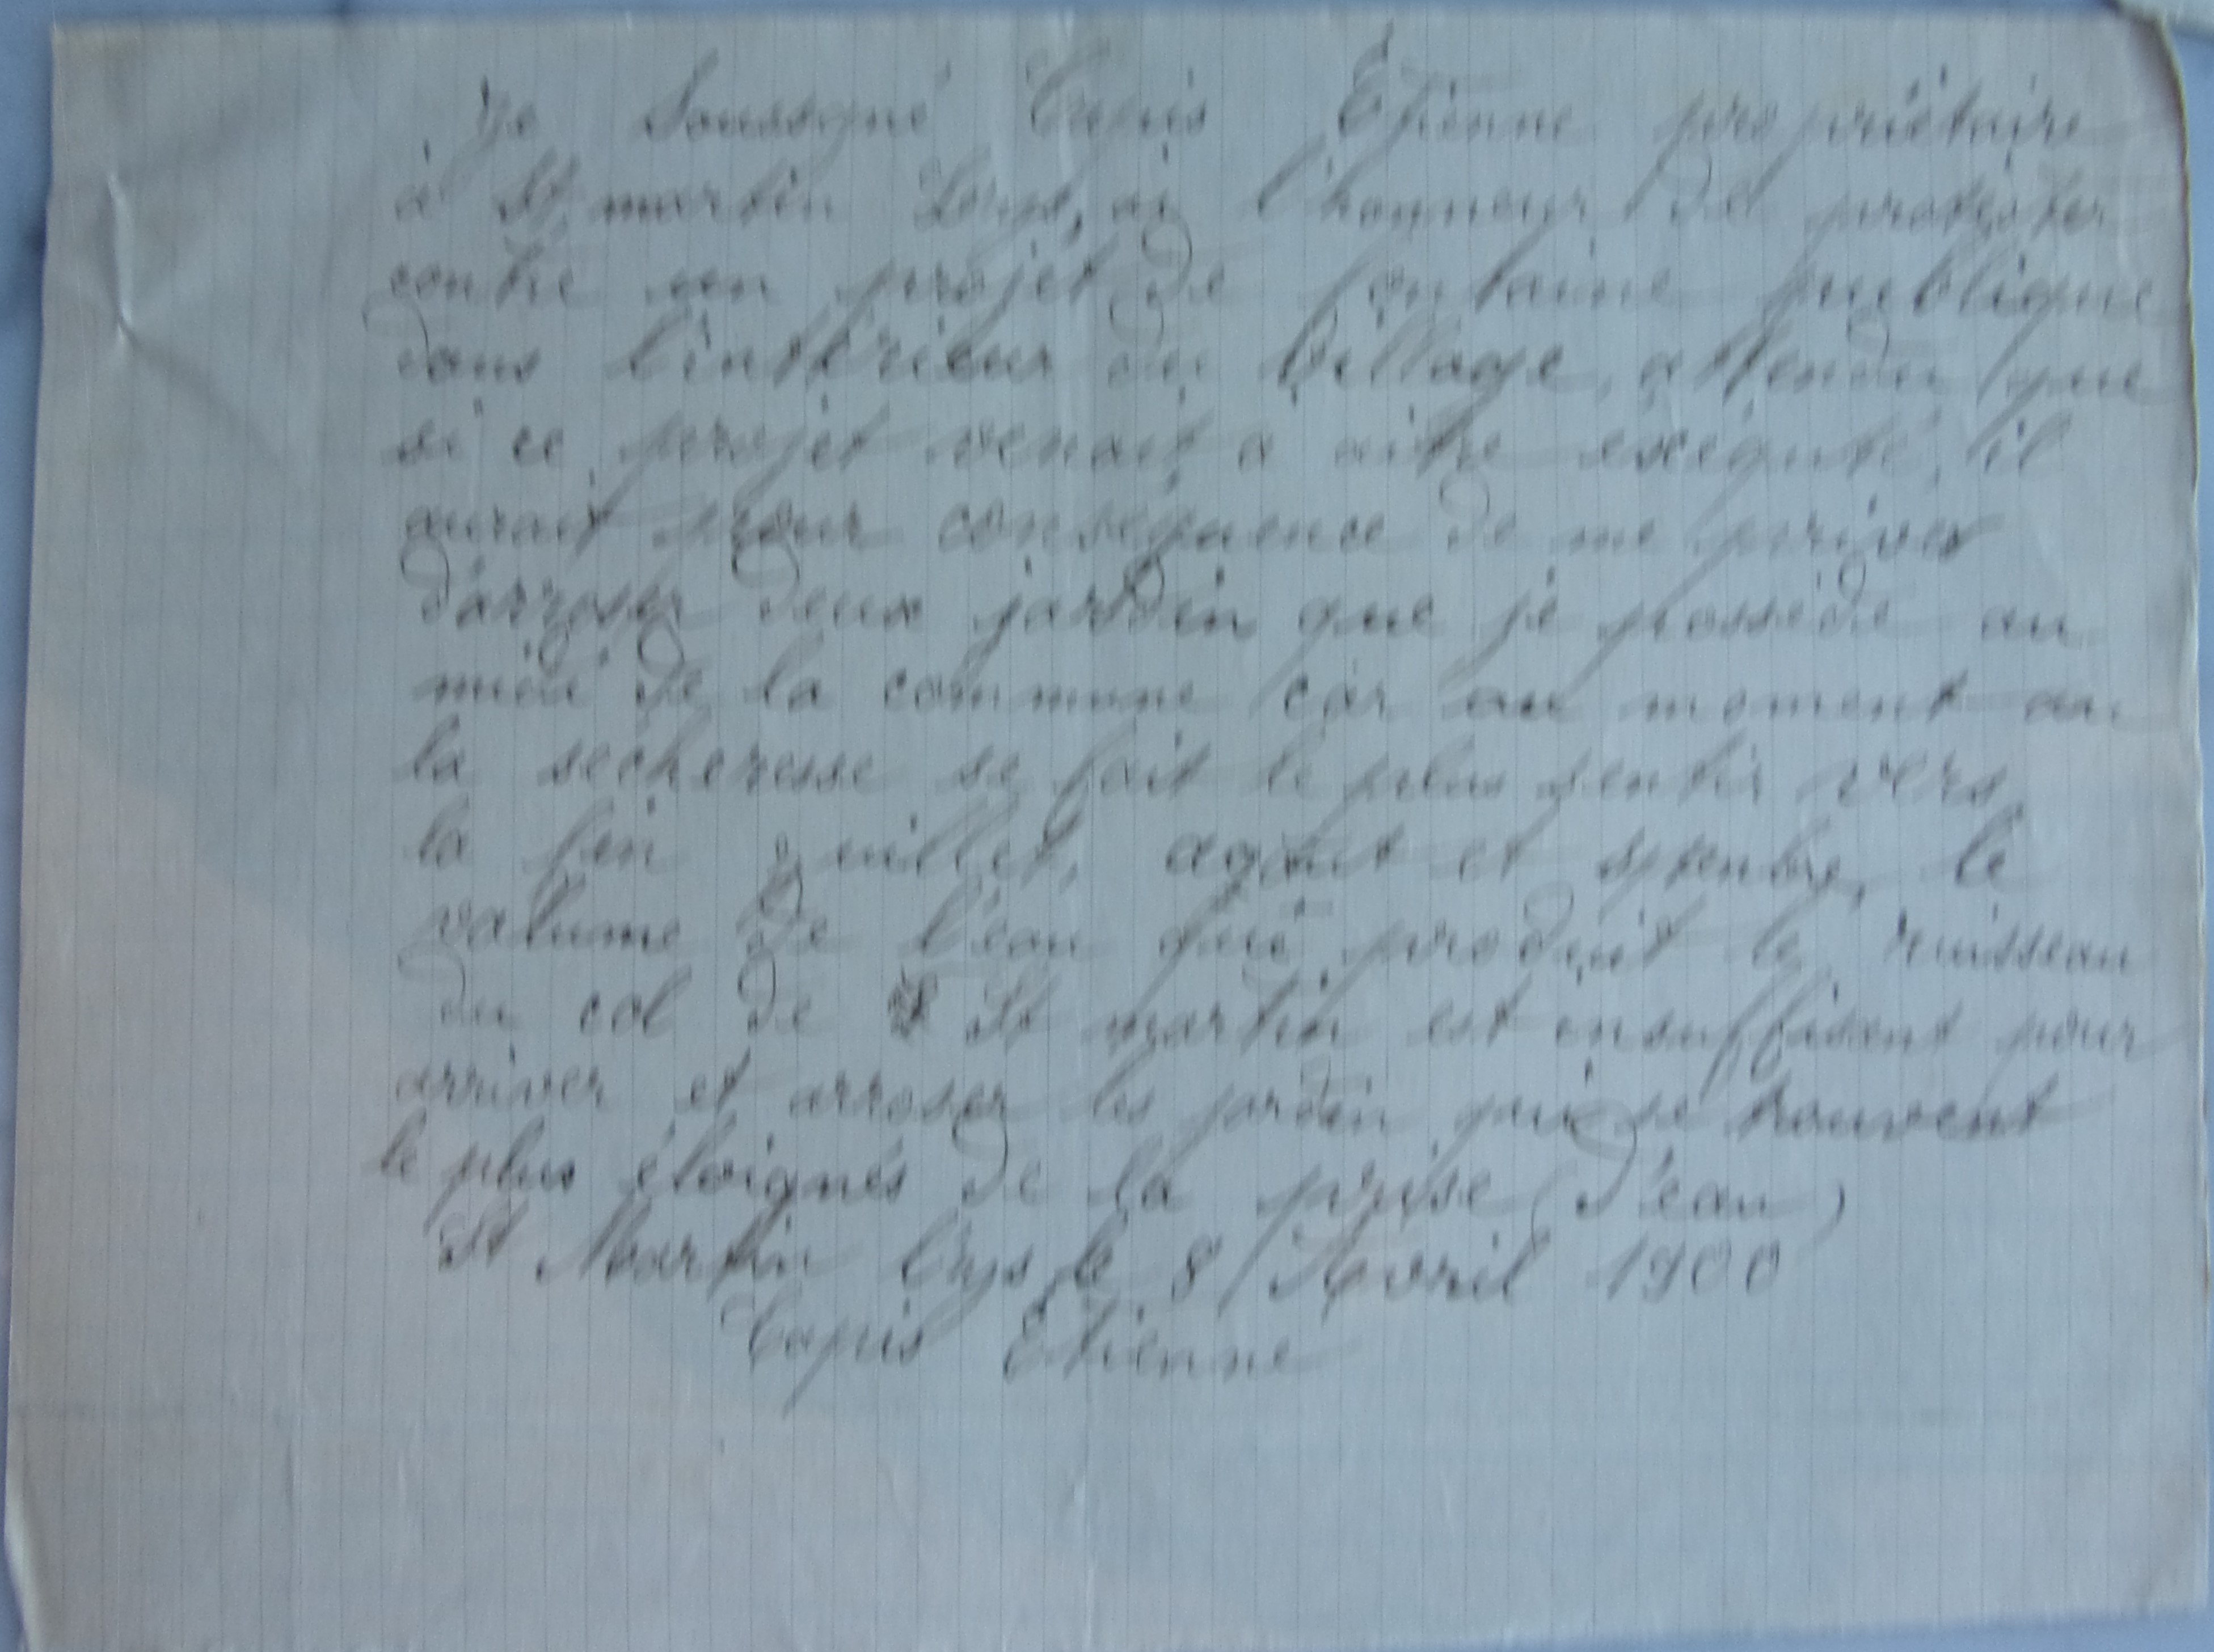 Je Soussigné Capis Étienne propriétaire
à St martin Lys, ai l'honneur de protester
contre un projet de fontaine publique
dans l'intérieur du Village, attendu que
si ce projet venait à aitre éxéquté, il
aurait pour conséquence de me priver
d'arroser deux jardin que je possède au
midi de la commune car au moment au
la secheresse se fait le plus sentir vers
la fin juillet, agout et sptenbre, le
valume de l'eau que produit le ruisseau
du col de St martin est insuffisent pour
arriver et arroser les jardin qui se trouvent
le plus éloignés de la prise d'eau
St Martin Lys le 8 Avril 1900
Capis Etienne